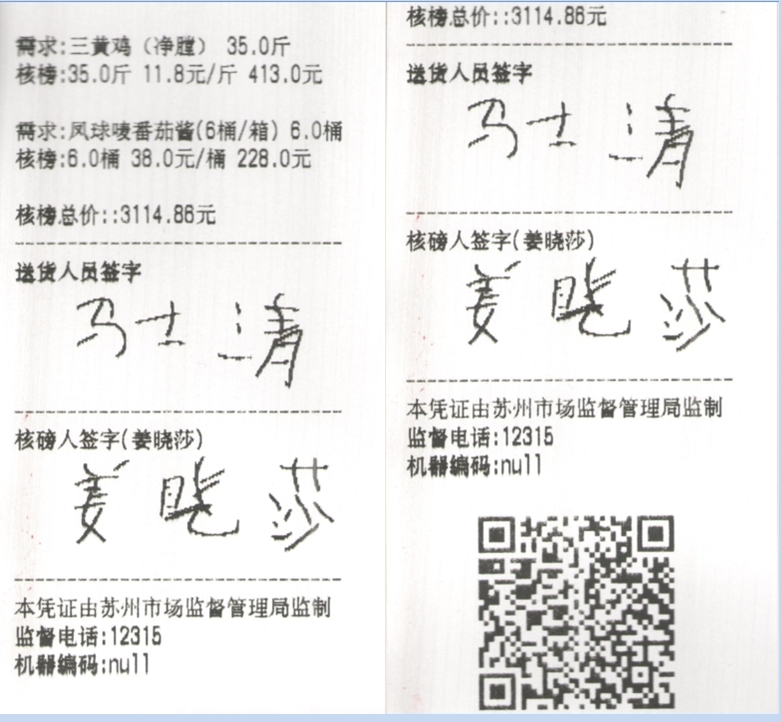 需求:三黄鸡（净膛） 35.0斤
核榜:35.0斤 11.8元/斤 413.0元
需求:凤球唛番茄酱(6桶/箱) 6.0桶
核榜:6.0桶 38.0元/桶 228.0元
核榜总价::3114.86元
送货人员签字
马士清
核磅人签字(姜晓莎)
姜晓莎
本凭证由苏州市场监督管理局监制
监督电话:12315
机器编码:null
核榜总价::3114.86元
送货人员签字
马士清
核磅人签字(姜晓莎)
姜晓莎
本凭证由苏州市场监督管理局监制
监督电话:12315
机器编码:null